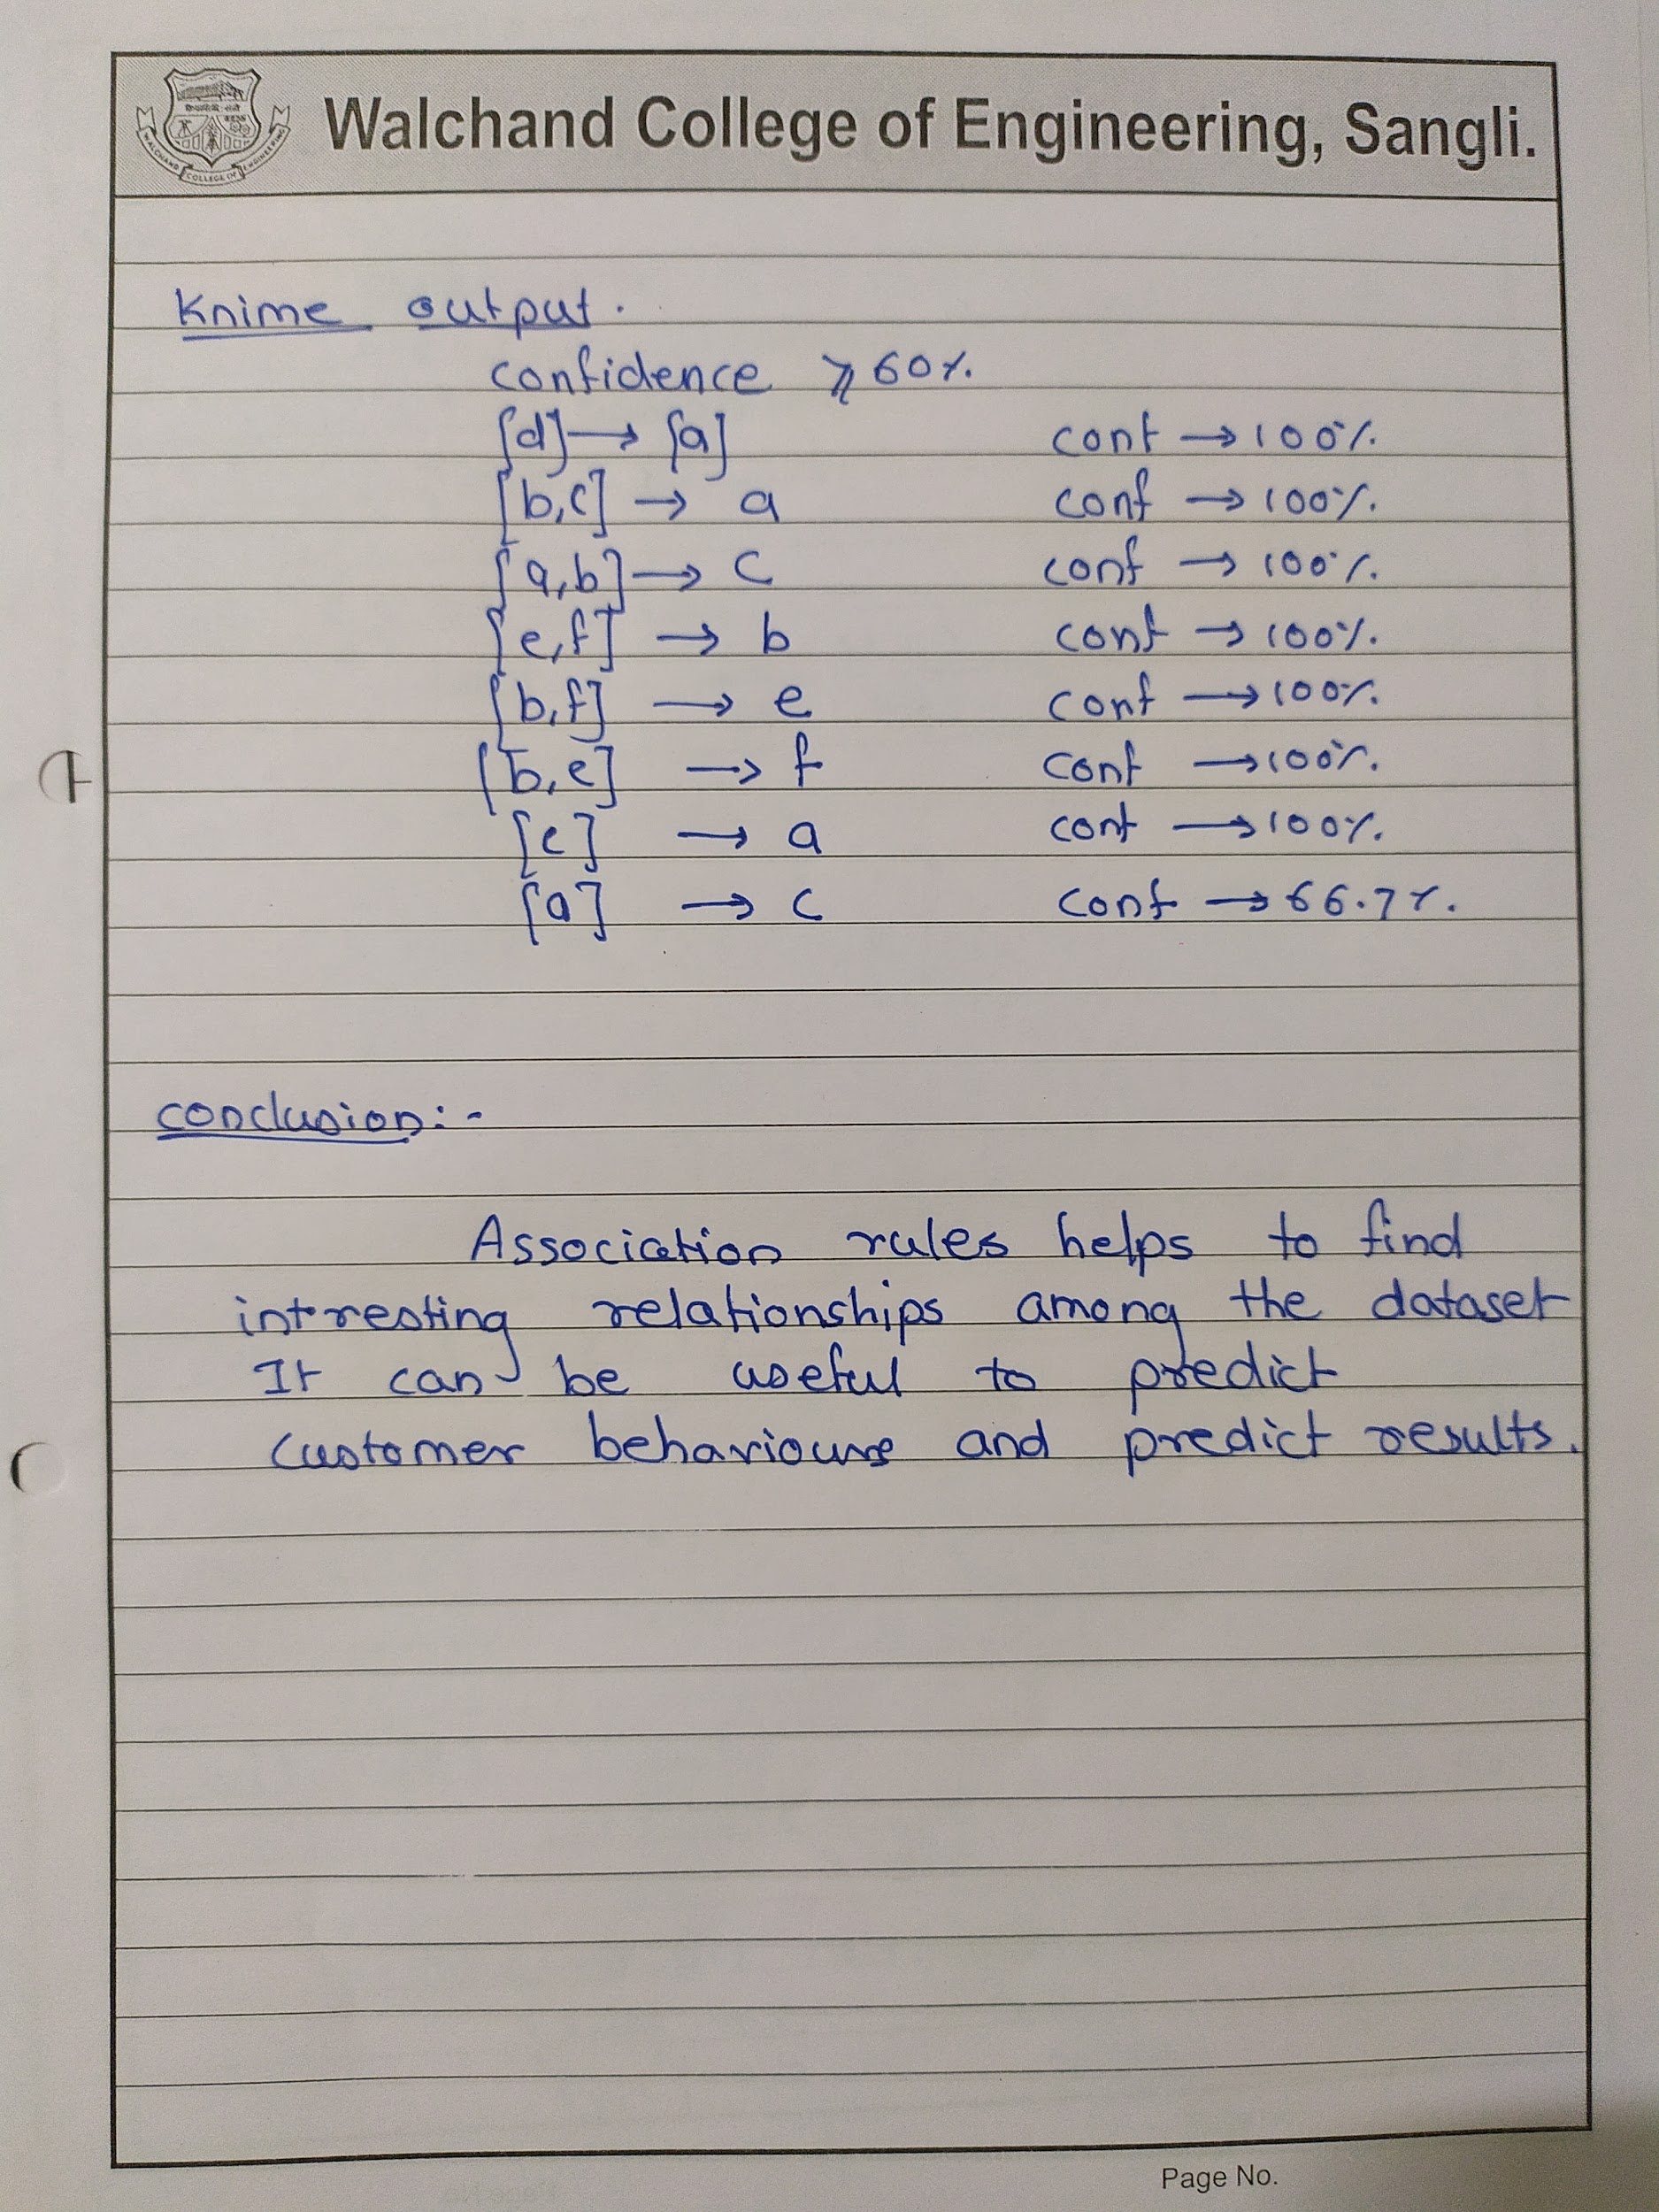 Walchand College of Engineering, Sangli.
WALCHAND COLLEGE OF ENGINEERING
Knime output.
confidence ⩾ 60%.
[d] → [a] conf → 100%.
[b,c] → a conf → 100%.
[a,b] → c conf → 100%.
[e,f] → b conf → 100%.
[b,f] → e conf → 100%.
[b,e] → f conf → 100%.
[c] → a conf → 100%.
[a] → c conf → 66.7%.
conclusion:-
Association rules helps to find
intresting relationships among the dataset
It can be useful to predict
customer behaviours and predict results.
Page No.